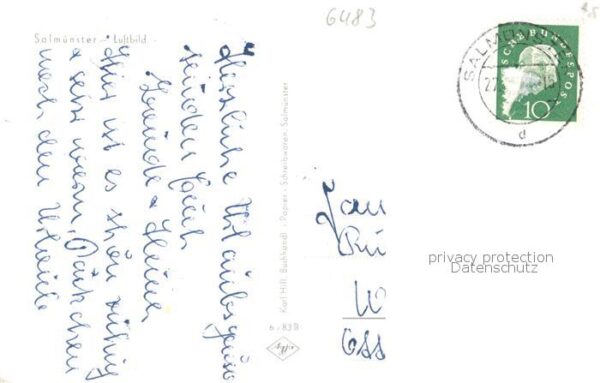 Salmünster - Luftbild
6483
Herzliche Urlaubsgrüße
senden Euch
Heiner
Hier ist es schön ruhig
+ sehr warm.
nach dem Urlaub
Karl Hill, Buchhandl. - Papier - Schreibwaren, Salmünster
6 - 83 B
SALMÜNSTER
DEUTSCHE BUNDESPOST
10
d
Fam
W
privacy protection
Datenschutz